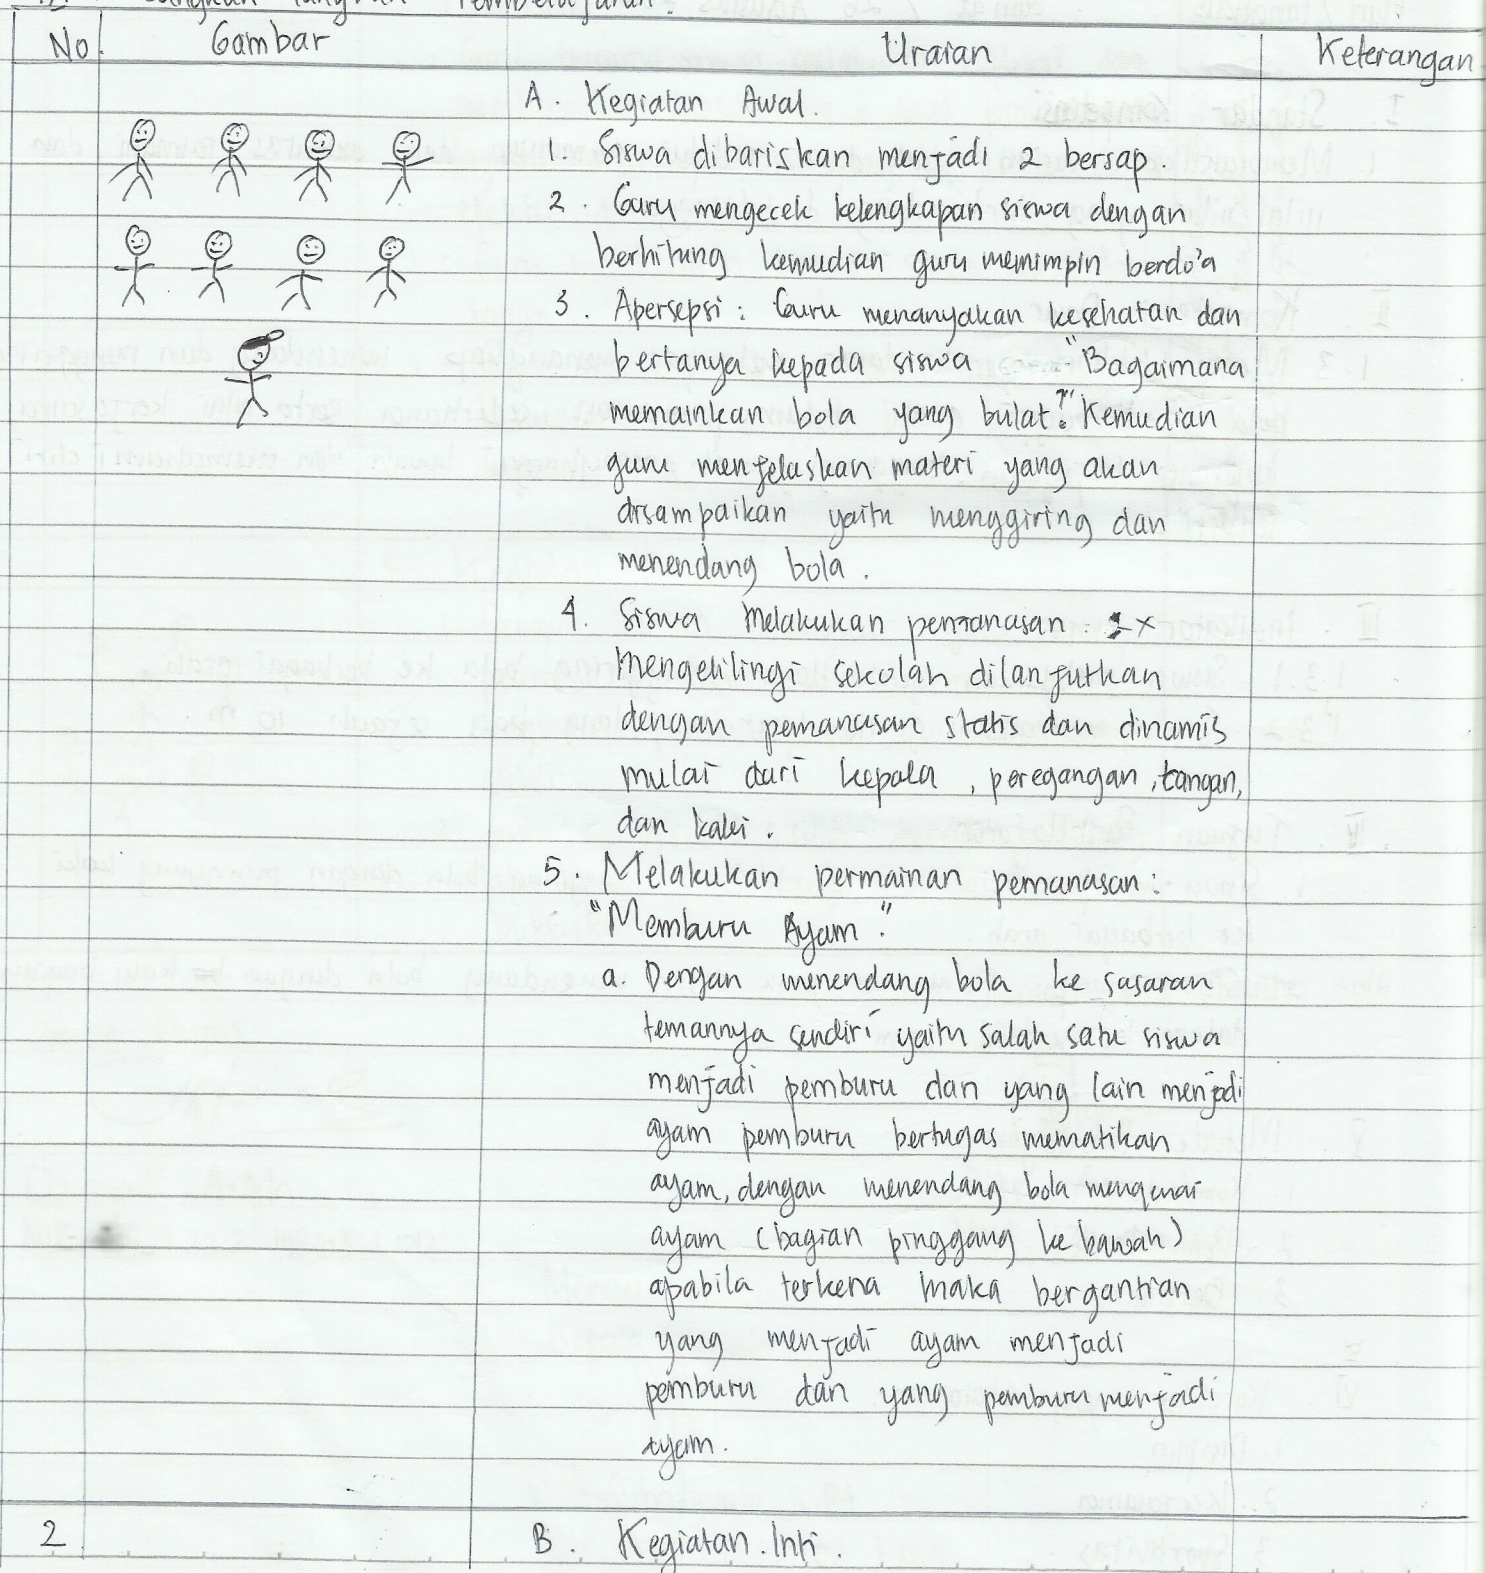 Pembelajaran.
No Gambar Uraian Keterangan
A. Kegiatan Awal.
1. Siswa dibariskan menjadi 2 bersap.
2. Guru mengecek kelengkapan siswa dengan
berhitung kemudian guru memimpin berdo'a
3. Apersepsi : Guru menanyakan kesehatan dan
bertanya kepada siswa "Bagaimana
memainkan bola yang bulat?" Kemudian
guru menjelaskan materi yang akan
disampaikan yaitu menggiring dan
menendang bola.
4. Siswa Melakukan pemanasan
mengelilingi sekolah dilanjutkan
dengan pemanasan statis dan dinamis
mulai dari kepala, peregangan, tangan,
dan kaki.
5. Melakukan permainan pemanasan :
"Memburu Ayam".
a. Dengan menendang bola ke sasaran
temannya sendiri yaitu salah satu siswa
menjadi pemburu dan yang lain menjadi
ayam pemburu bertugas mematikan
ayam, dengan menendang bola mengenai
ayam (bagian pinggang ke bawah)
apabila terkena maka bergantian
yang menjadi ayam menjadi
pemburu dan yang pemburu menjadi
ayam.
2 B. Kegiatan Inti.